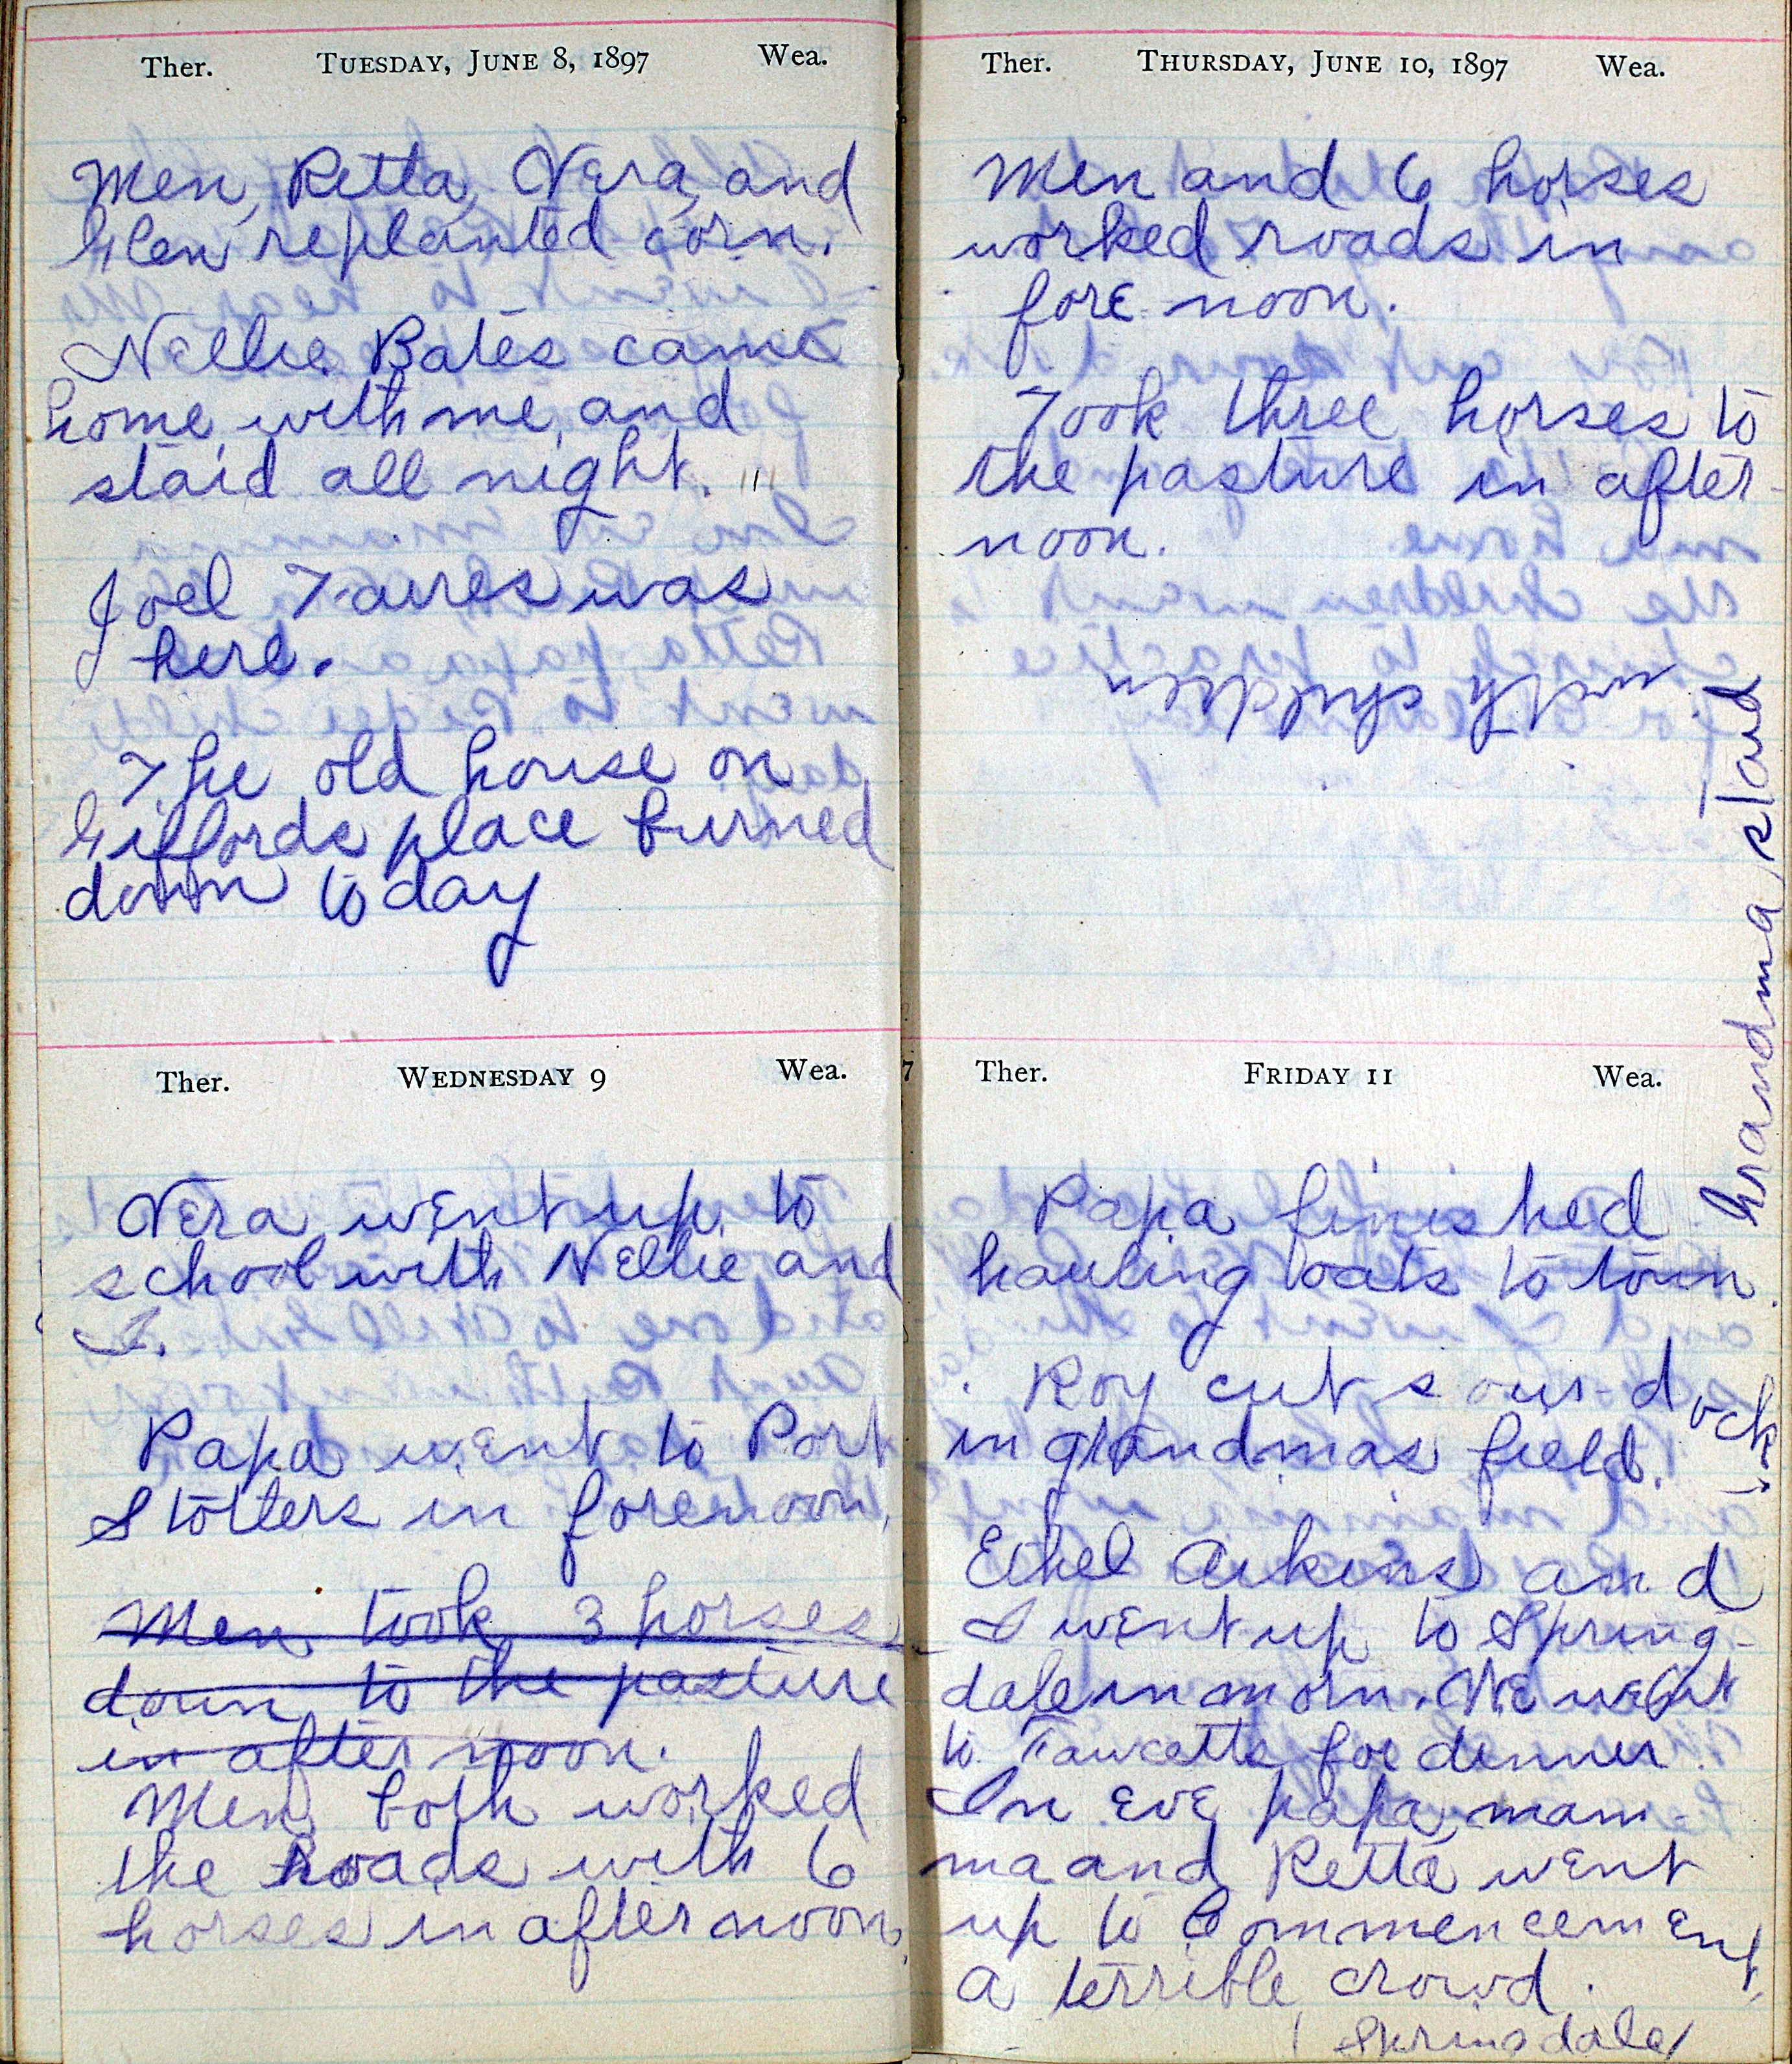 Ther. TUESDAY, JUNE 8, 1897 Wea.
Men, Retta, Vera, and
Glen replanted corn.
Nellie Bates came
home with me, and
staid all night.
Joel
was
here.
The old house on
Giffords place burned
down to day
Ther. WEDNESDAY 9 Wea.
Vera went up to
school with Nellie and
I.
Papa went to Port
Stotters in forenoon.
Men took 3 horses
down to the pasture
in after noon.
Men both worked
the Roads with 6
horses in after noon.
Ther. THURSDAY, JUNE 10, 1897 Wea.
Men and 6 horses
worked roads in
fore-noon.
Took three horses to
the pasture in after-
noon.
7 Ther. FRIDAY 11 Wea.
Papa finished
hauling oats to town.
Roy cut sour-dock
in grandmas field.
Ethel Aikins and
I went up to Spring-
dale in morn. We went
to Fawcetts for dinner.
In eve papa, mam-
ma and Retta went
up to Commencement,
a terrible crowd.
Springdale
Grandma staid
with children